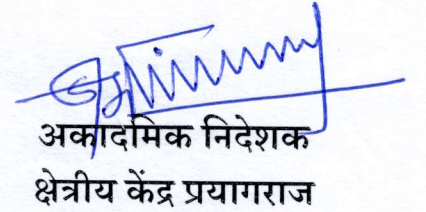 अकादमिक निदेशक
क्षेत्रीय केंद्र प्रयागराज